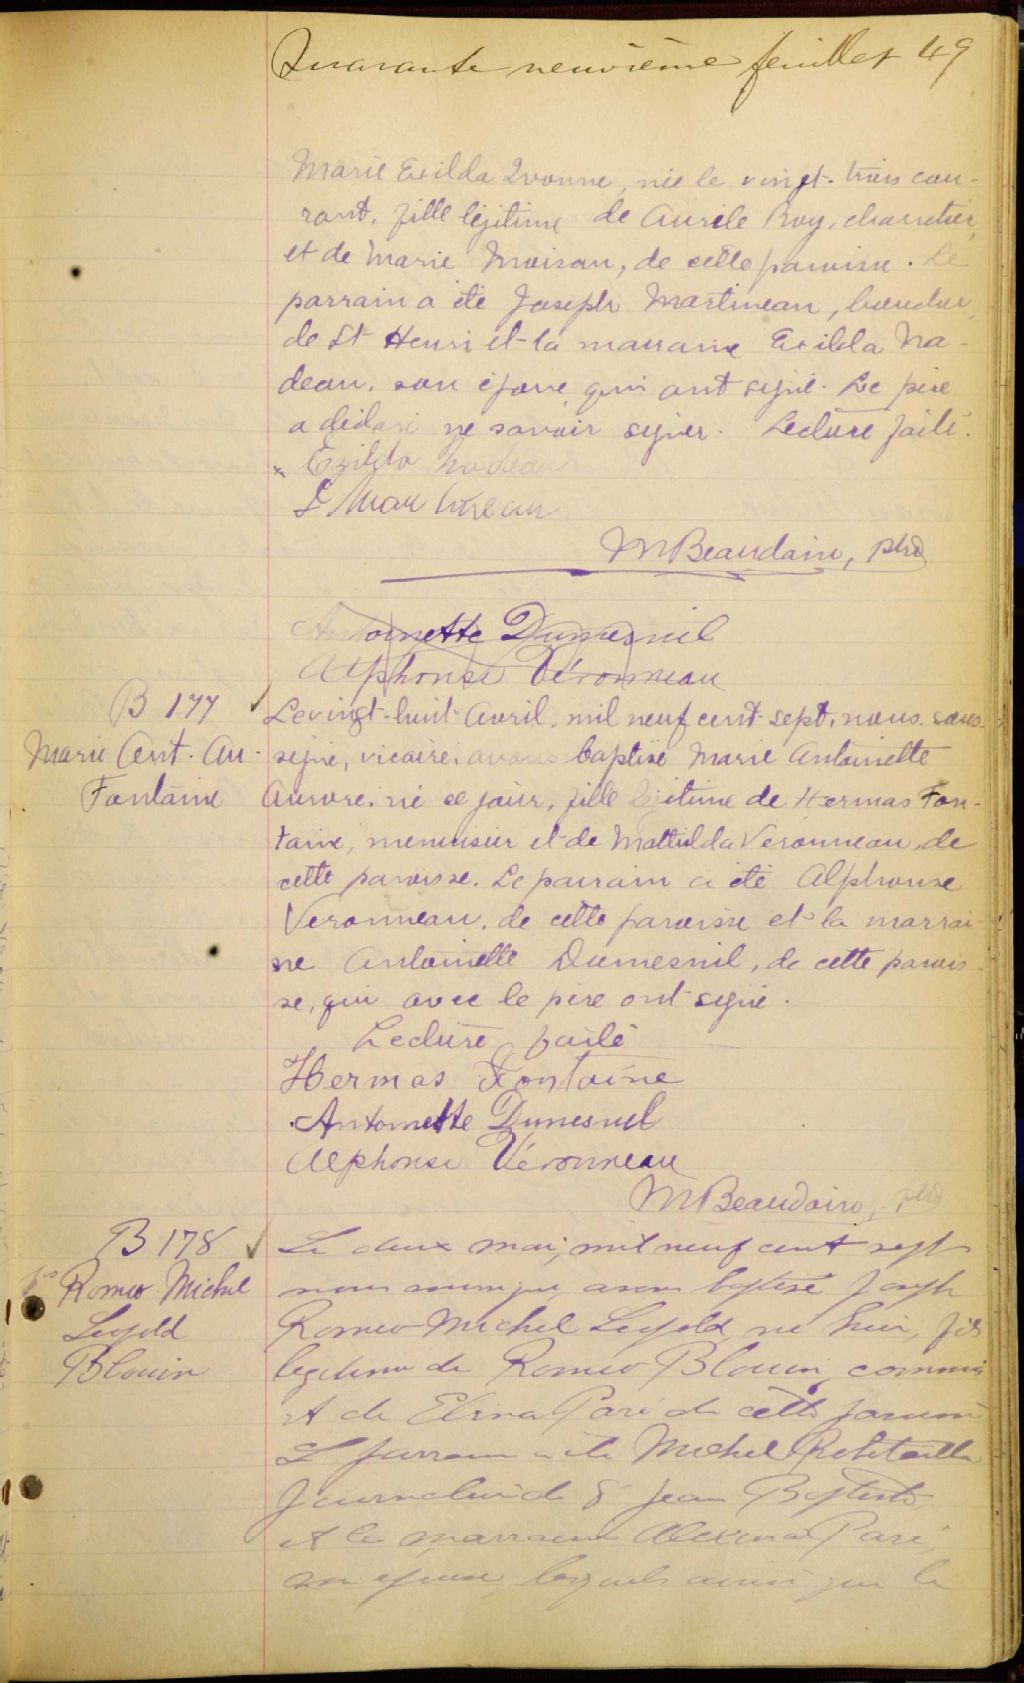 Quarante neuvième feuillet 49
Marie Exilda Yvonne, née le vingt-trois cou-
rant, fille légitime de Aurèle Roy, charretier,
et de Marie Moisan, de cette paroisse. Le
parrain a été Joseph Martineau, boucher,
de St Henri et la marraine Exilda Na-
deau, son épouse, qui ont signé. Le père
a déclaré ne savoir signer. Lecture faite.
x Exilda Nadeau
J Martineau
M Beaudoin, ptre
Antoinette Dumesnil
Alphonse Véronneau
B 177
Marie Ant. Au-
Fontaine
Le vingt-huit Avril, mil neuf cent sept, nous, sous-
signé, vicaire, avons baptisé Marie Antoinette
Aurore, né ce jour, fille légitime de Hermas Fon-
taine, menuisier et de Mathilda Veronneau, de
cette paroisse. Le parrain a été Alphonse
Veronneau, de cette paroisse et la marrai-
ne Antoinette Dumesnil, de cette parois-
se, qui avec le père ont signé.
Lecture faite
Hermas Fontaine
Antoinette Dumesnil
Alphonse Véronneau
M Beaudoin, ptre
B 178
Jos Romeo Michel
Leopold
Blouin
Le deux mai, mil neuf cent sept
nous soussigné avons baptisé Joseph
Romeo Michel Leopold né hier, fils
legitime de Romeo Blouin, commis
et de Elena Paré de cette paroisse
Le parrain a été Michel Robitaille
Journalier de St Jean Baptiste
et la marraine Alexina Paré,
son epouse lesquels ainsi que le